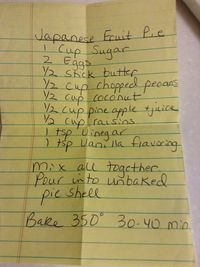 Japanese Fruit Pie
1 Cup Sugar
2 Eggs
1/2 stick butter
1/2 cup chopped pecans
1/2 cup coconut
1/2 cup pineapple + juice
1/2 cup raisins
1 tsp vinegar
1 tsp vanilla flavoring
mix all together
Pour into unbaked
pie shell
Bake 350° 30-40 min